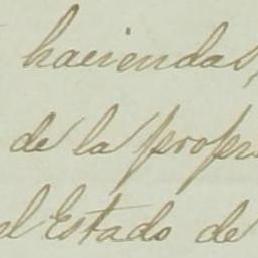 haciendas,
de la prop
el Estado de